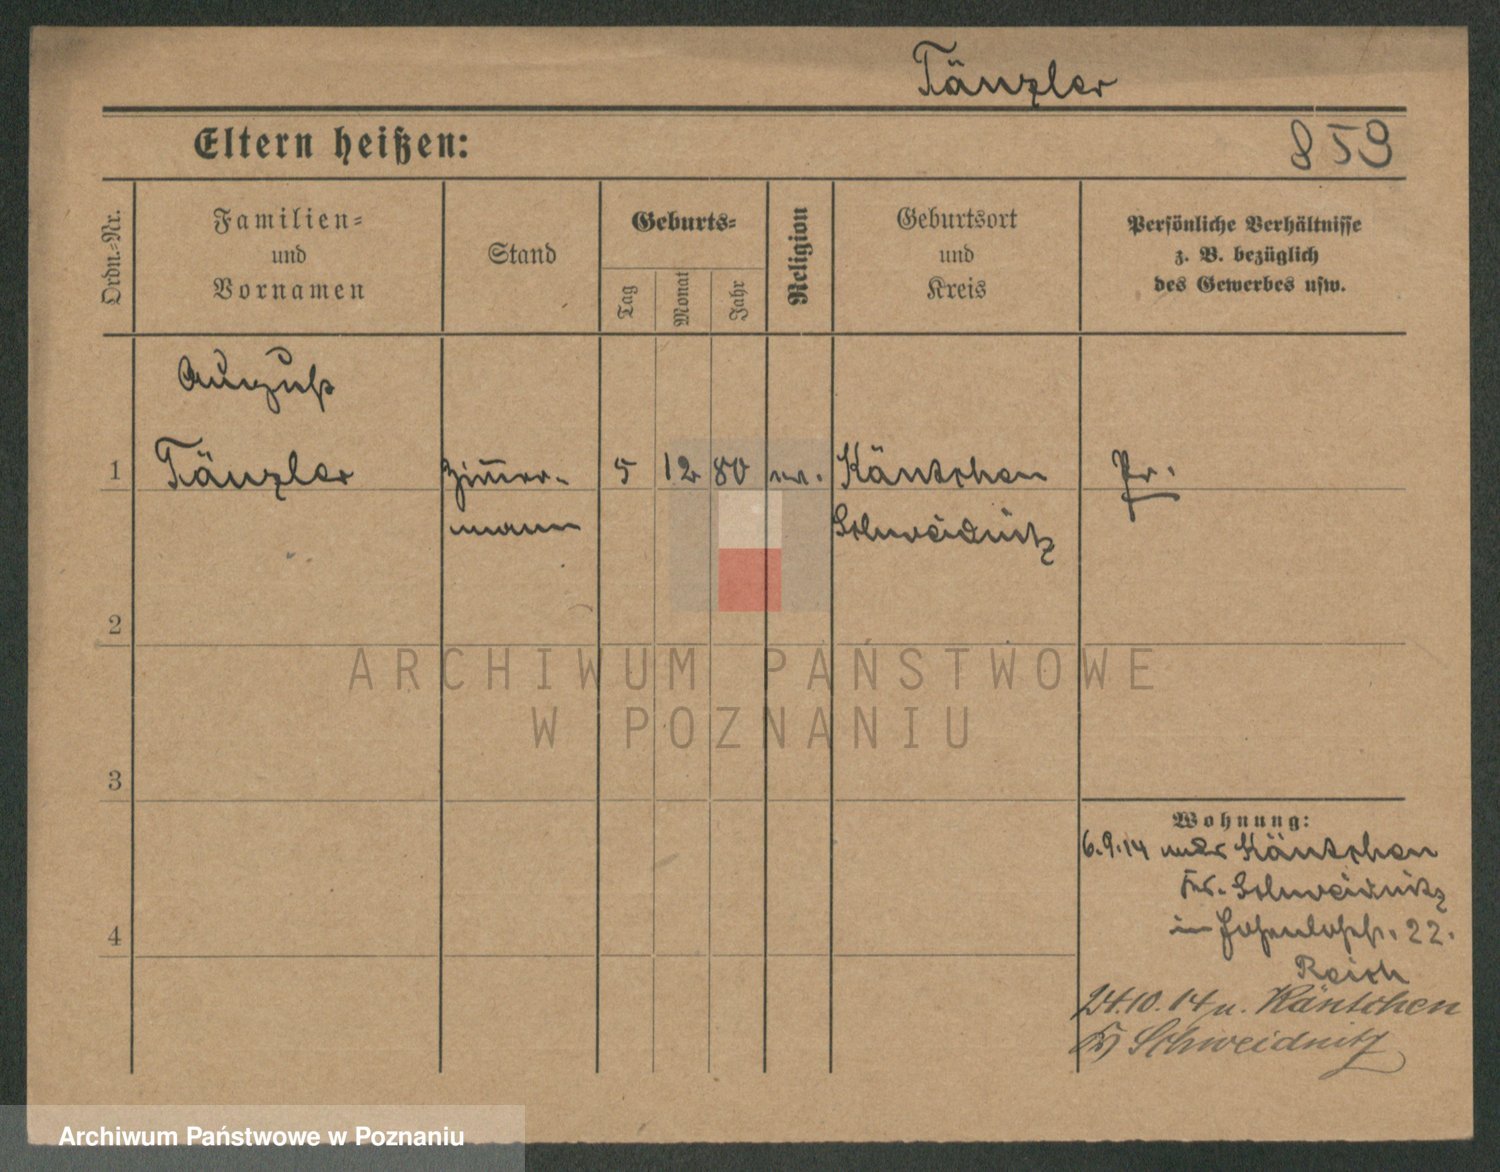 Tänzler
Eltern heißen:
859
Ordn.-Nr.
Familien-
und
Vornamen
Stand
Geburts-
Tag
Monat
Jahr
Religion
Geburtsort
und
Kreis
Persönliche Verhältnisse
z. B. bezüglich
des Gewerbes usw.
August
1 Tänzler Zim̅er- 5 12 80 ev. Käntschen Pr.
mann Schweidnitz
2
3
4
Wohnung:
6.9.14 Käntschen
Kr. Schweidnitz
22.
Reich
24.10.14 n. Käntschen
Kr Schweidnitz
ARCHIWUM PAŃSTWOWE
W POZNANIU
Archiwum Państwowe w Poznaniu